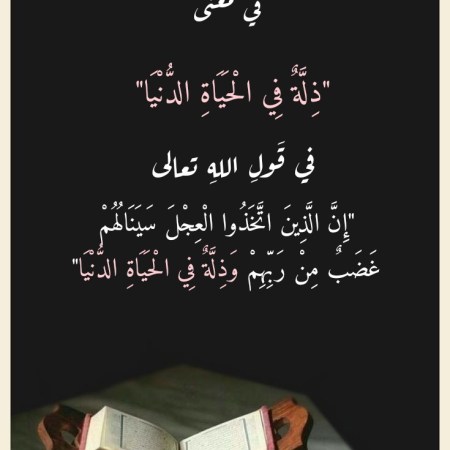 في معنى
"ذِلَّةٌ فِي الْحَيَاةِ الدُّنْيَا"
في قَولِ اللهِ تعالى
"إِنَّ الَّذِينَ اتَّخَذُوا الْعِجْلَ سَيَنَالُهُمْ
غَضَبٌ مِنْ رَبِّهِمْ وَذِلَّةٌ فِي الْحَيَاةِ الدُّنْيَا"